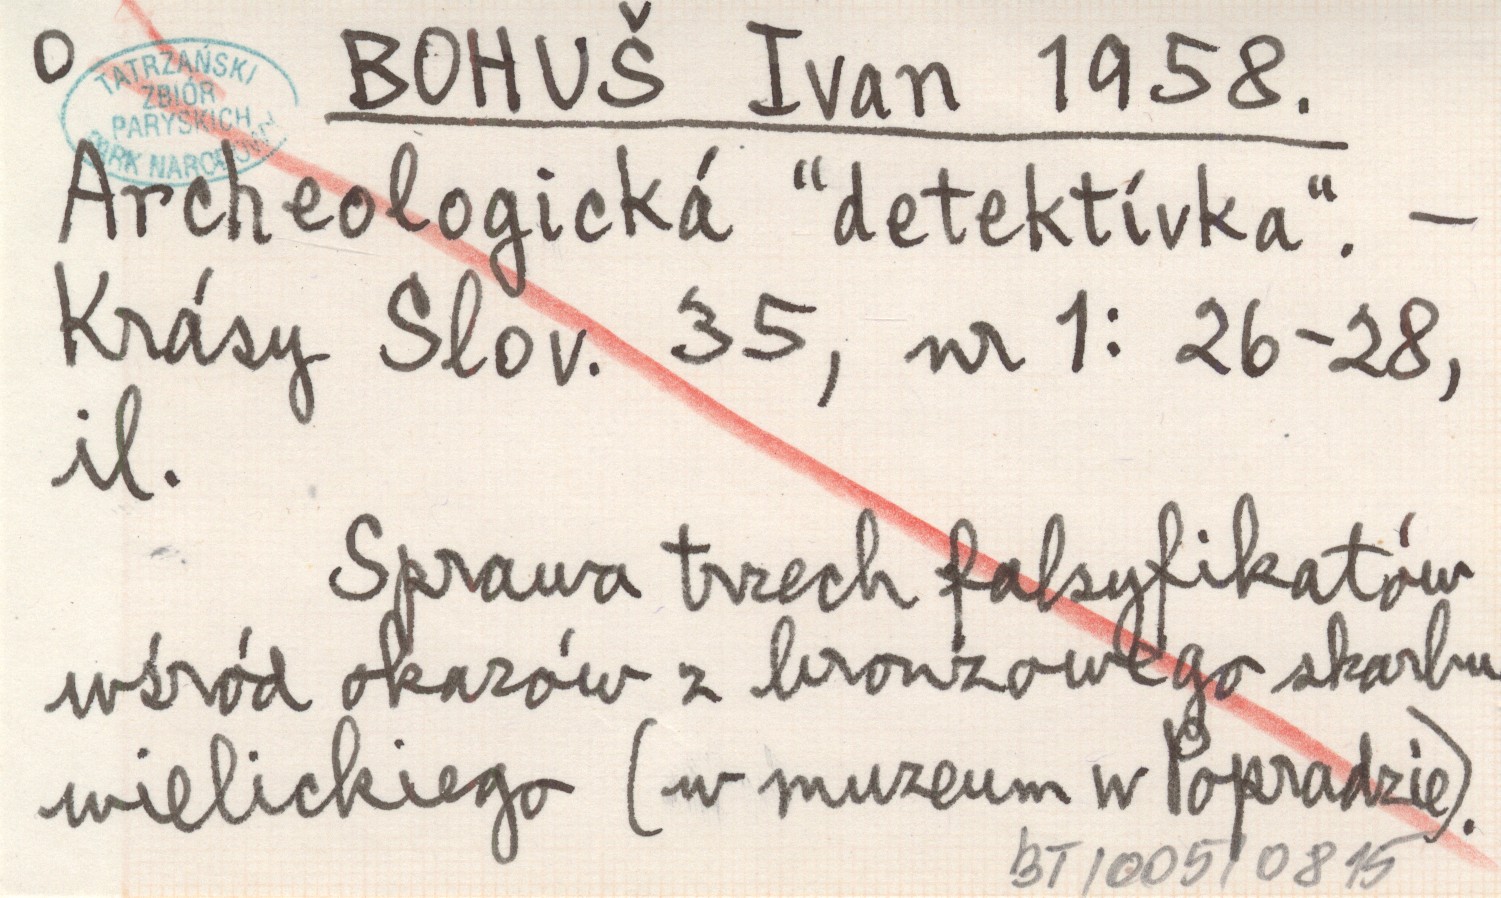 O
TATRZAŃSKI
ZBIÓR
PARYSKICH
PARK NARODOWY
BOHUŠ Ivan 1958.
Archeologická “detektívka“. –
Krásy Slov. 35, nr 1: 26-28,
il.
Sprawa trzech falsyfikatów
wśród okazów z bronzowego skarbu
wielickiego (w muzeum w Popradzie).
BT/005/0815